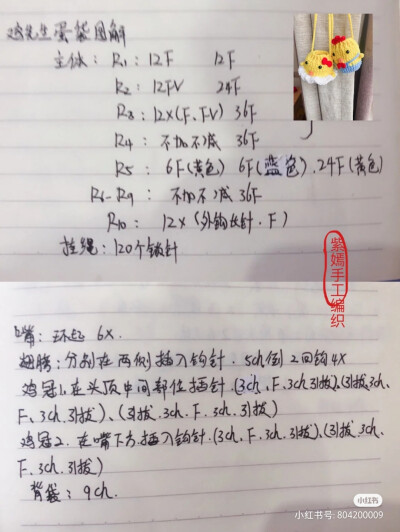 鸡先生蛋袋图解
主体: R1: 12F 12F
R2: 12FV 24F
R3: 12X(F、FV) 36F
R4: 不加不减 36F
R5: 6F(黄色) 6F(蓝色).24F(黄色)
R6-R9: 不加不减 36F
R10: 12X(外钩长针.F)
挂绳:120个锁针
紫嫣手工编织
嘴: 环起 6X.
翅膀:分别在两侧插入钩针.5ch倒2回钩4X
鸡冠1.在头顶中间部位插针.(3ch、F.3ch.引拔)、(引拔.3ch、
F、3ch.引拔)、(引拔.3ch.F.3ch.引拔)
鸡冠2.在嘴下方插入钩针.(3ch、F.3ch.引拔)、(引拔.3ch、
F.3ch.引拔)
背袋: 9ch.
小红书
小红书号: 804200009